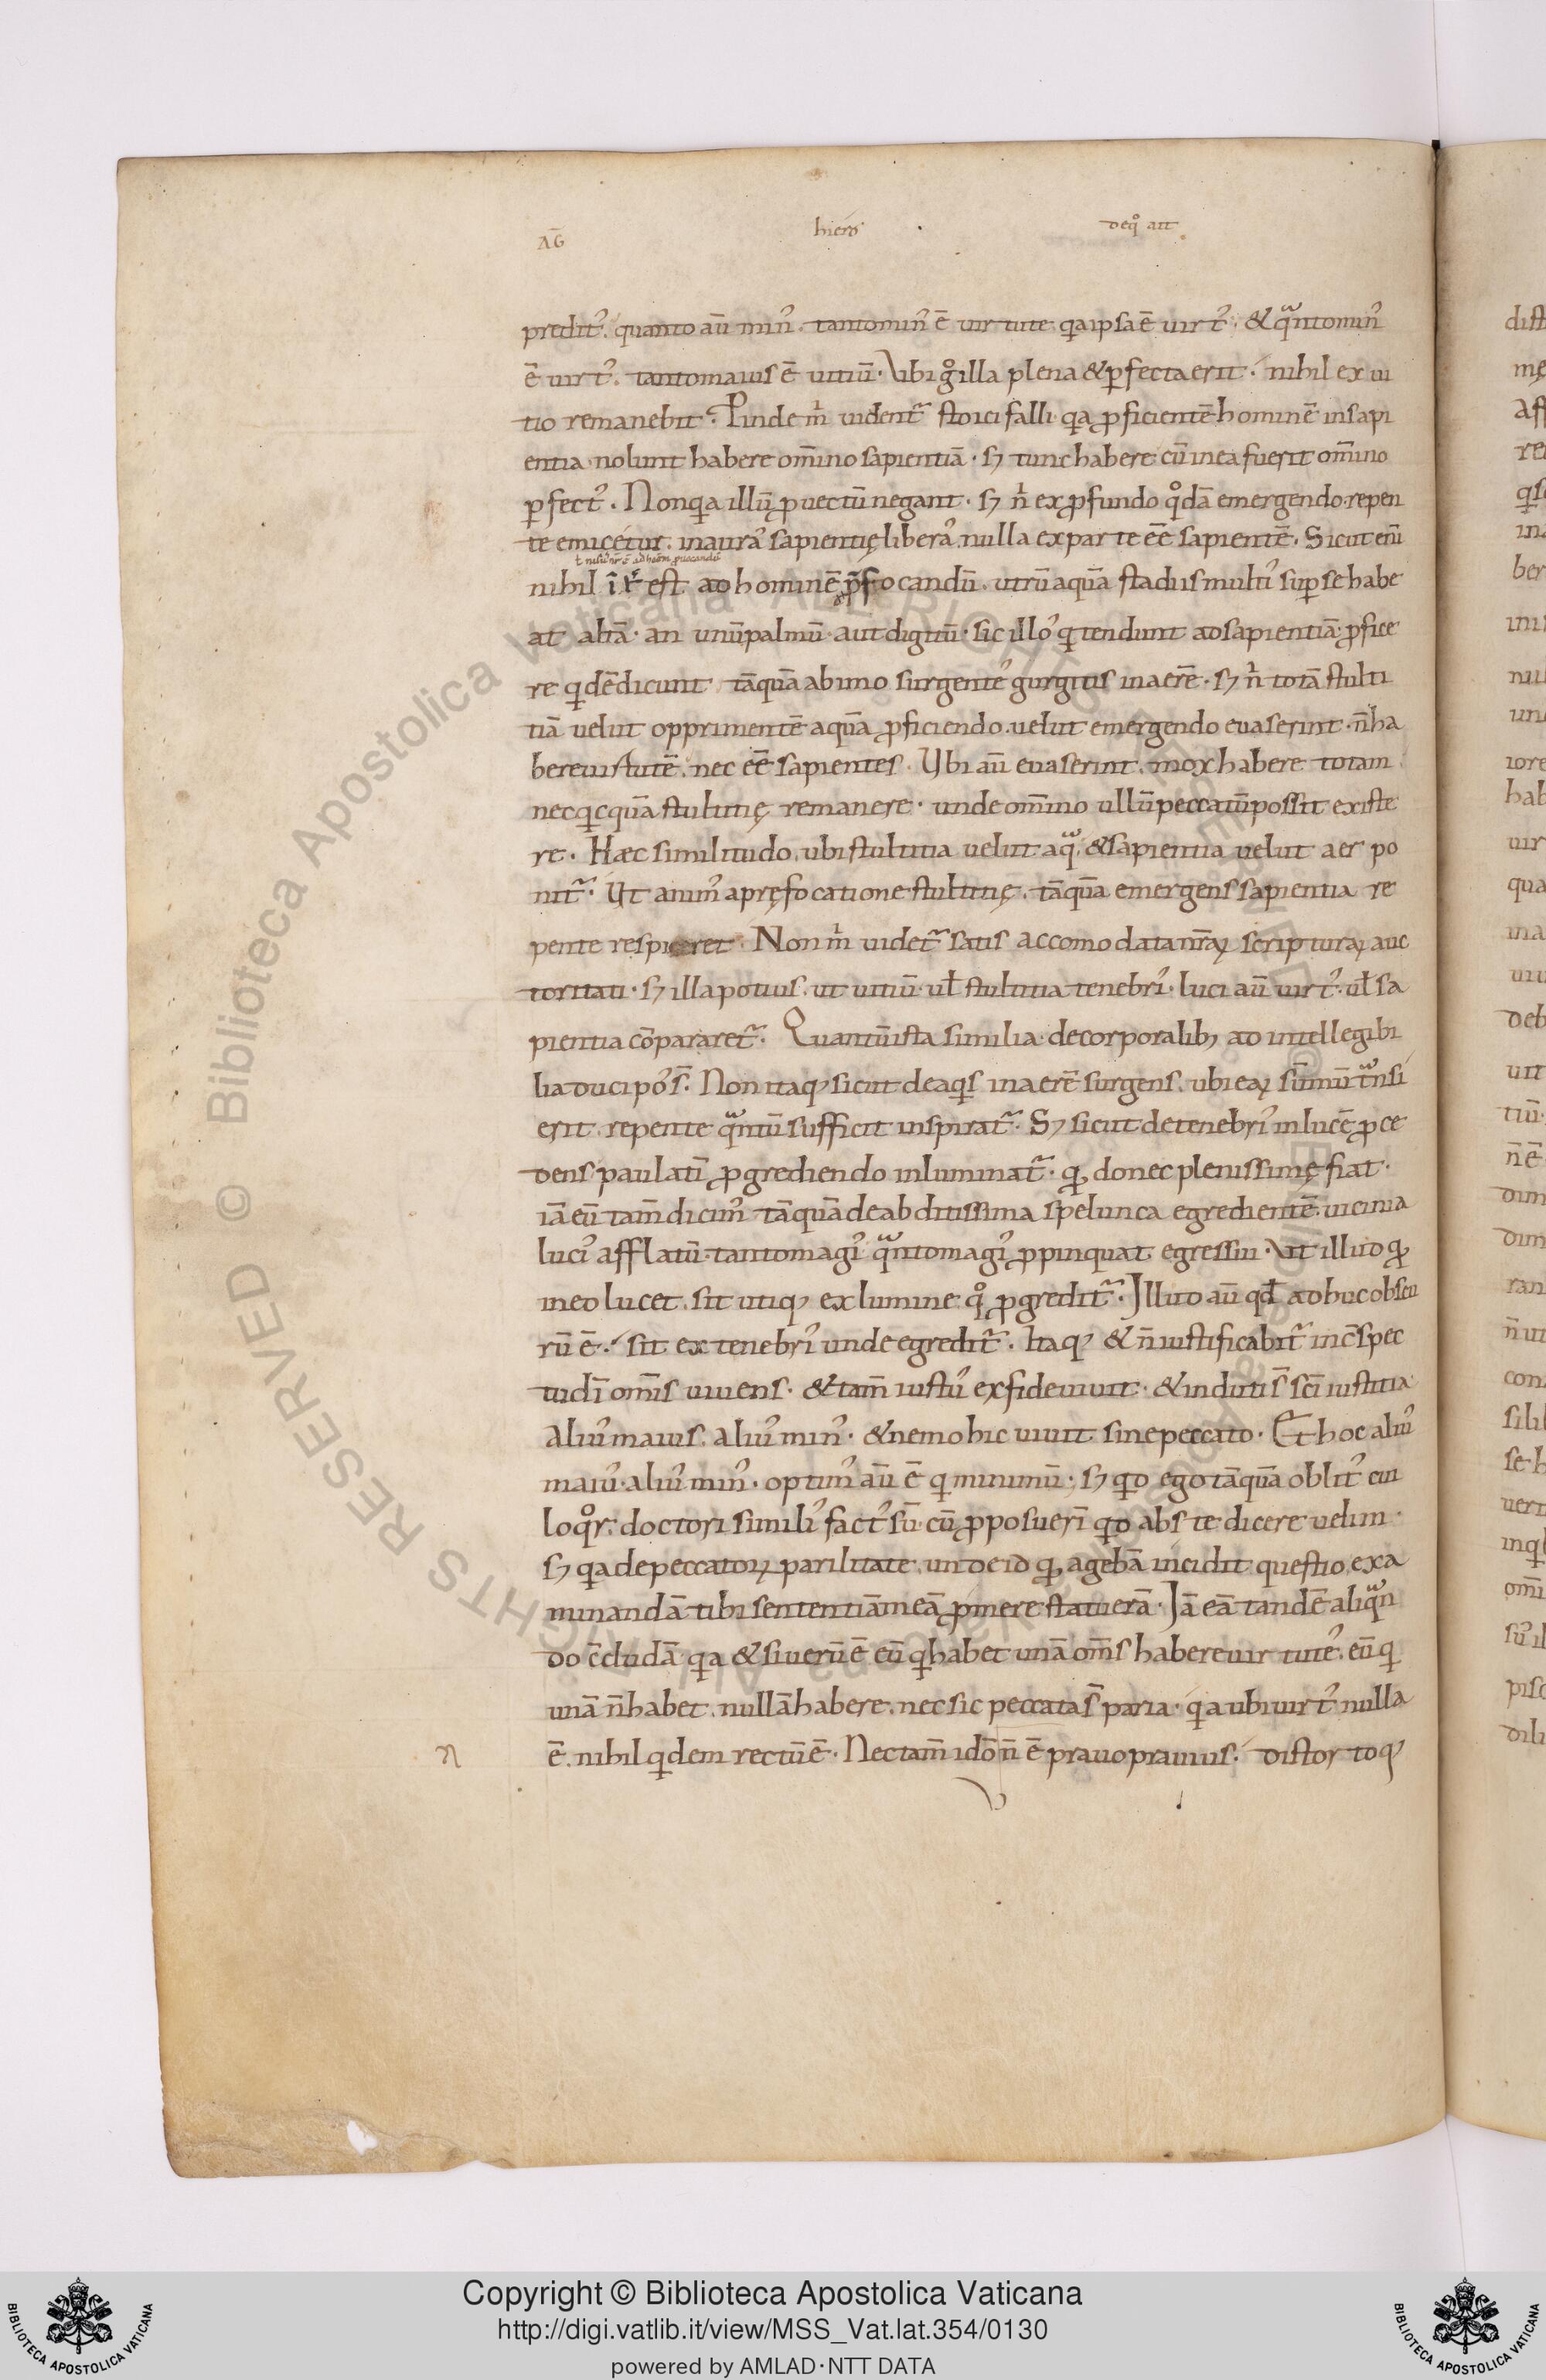 AḠ hierō deqͦ att
predit᷒. quanto aū min᷒. tantomin᷒ ē uirtute. qaipsaē uirt᷒. & qͣntomin᷒
ē uirt᷒. tantomaius ē uitiū. Vbi gͦ illa plena & ꝑfecta erit. nihil ex ui
tio remanebit. Proinde m̍ uident᷒ stoici falli. qa ꝓficientē hominē insapi
entia. nolunt habere om̄ino sapientiā. sꝫ tunc habere cū inea fuerit om̄ino
ꝑfect᷒. Nonqa illū ꝓuectū negant. sꝫ n̍ ex ꝓfundo qͦdā emergendo. repen
te emicétur. inaura᷒ sapientię libera᷒. nulla exparte eē sapientē. Sicut eni
nihil īt̄ est ad hominē p̄focandū. utrū aquā stadiis multi᷒ suꝑ se habe
at altā. an unū palmū. aut digitū. sic illo᷒ qi tendunt ad sapientiā. ꝓfice
re qidē dicunt tāquā abimo surgente᷒ gurgitis inaerē. sꝫ n̍ totā stulti
tiā uelut opprimentē aquā ꝓficiendo. uelut emergendo euaserint. n̄ ha
bere uirtutē. nec eē sapientes. Vbi aū euaserint. mox habere totam
necqicquā stultitię remanere. unde om̄ino ullū peccatū possit existe
re. Hæc similitudo. ubi stultitia uelut aqͣ. & sapientia uelut aer po
nit᷒. Vt anim᷒ apręfocatione stultitię. tāquā emergens sapientia re
pente respiceret. Non m̍ uidet᷒ satis accomodata nr̄aꝝ scripturaꝝ auc
toritati. sꝫ illa potius. ut uitiū. uł stultitia tenebri᷒. luci aū uirt᷒. uł sa
pientia cōpararet᷒. Quantū ista similia. decorporalibꝫ ad intellegibi
lia duci po᷒s̄. Non itaqꝫ sicut deaqis inaerē surgens. ubi eaꝝ sūmū tͣnsi
erit. repente qͣntū sufficit inspirat᷒. Sꝫ sicut detenebri᷒ inlucē ꝓce
dens paulatī ꝓgrediendo inluminat᷒. qd donec plenissimę fiat.
iā eū tam̄ dicim᷒ tāquā deabditissima spelunca egredientē. uicinia
luci᷒ afflatū. tantomagi᷒ qͣntomagi᷒ ꝓpinquat egressui. Vt illud qd
ineo lucet. sit utiqꝫ exlumine qͦ ꝓgredit᷒. Illud aū qđ adhuc obscu
rū ē. sit ex tenebri᷒ unde egredit᷒. Itaqꝫ & n̄ iustificabit᷒ inc̄spec
tudī om̄is uiuens. & tam̄ iustu᷒ exfide uiuit. & induti s̄ sc̄i iustitia
Aliu᷒ maius. aliu᷒ min᷒. & nemo hic uiuit sinepeccato. Et hoc aliu᷒
maiu᷒. aliu᷒ min᷒. optim᷒ aū ē qi minimū. sꝫ qid ego tāquā oblit᷒ cui
loqͦr. doctori simili᷒ fact᷒ sū. cū ꝓposuerī qid abs te dicere uelim.
sꝫ qa depeccatoꝝ parilitate. unde id qd agebā incidit questio. exa
minandā tibi sententiā meā ꝓmere statuerā. Iā eā tandē aliqͣn
do c̄cludā qa & si uerū ē eū qi habet unā om̄s habere uirtute᷒. eū qi
unā n̄ habet. nullā habere. nec sic peccata s̄ paria. qa ubi uirt᷒ nulla
ē. nihil qidem rectū ē. Nec tam̄ idō n̄ ē prauo prauius. distortoqꝫ